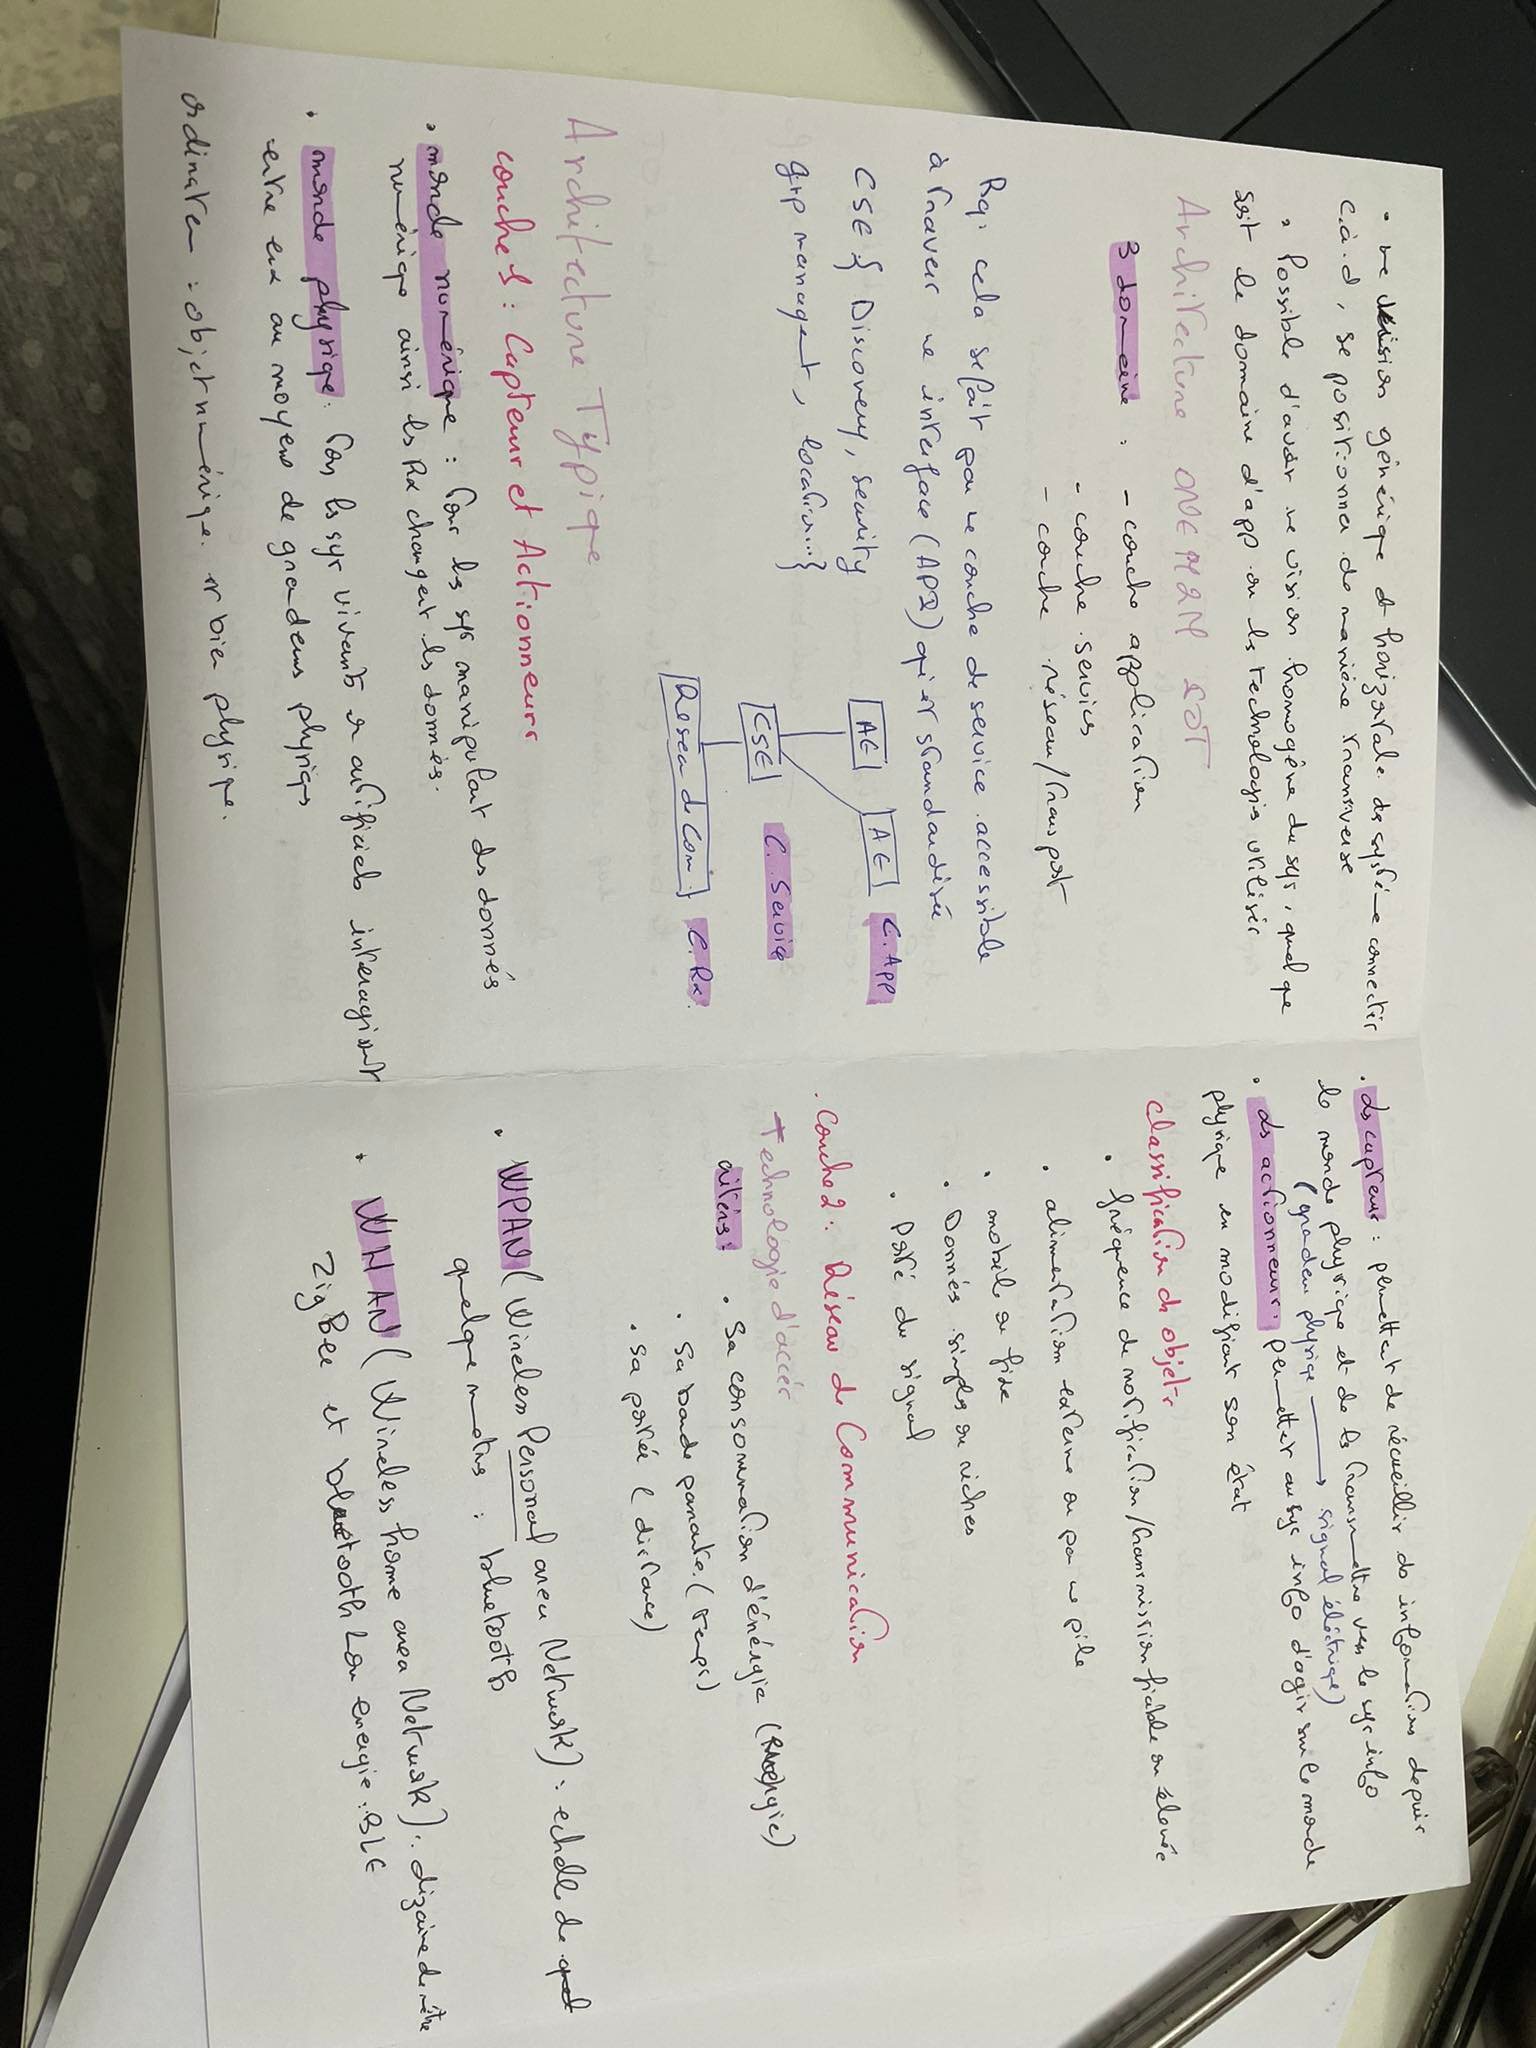 • une vision générique et horizontale des système connectés
c.à.d, se positionner de manière transverse
• Possible d'avoir une vision homogène du sys, quel que
soit le domaine d'app ou les technologies utilisés
Architecture ONEM2M IOT
3 domaine : - couche application
- couche services
- couche réseau/transport
Rq: cela se fait par une couche de service accessible
à travers une interface (API) qui est standardisée
CSE { Discovery, security
grp managent, location...}
AE AE C. App
CSE C. Service
Réseau de Com. C. Rx.
Architecture Typique
couche 1 : Capteurs et Actionneurs
• monde numérique : tous les sys manipulant des données
numérique ainsi les Rx changent les donnés.
• monde physique : tous les sys vivants ou artificiels interagissent
entre eux au moyens de grandeurs physiqs
ordinateur : objet numérique et bien physique.
• Les capteurs : permettent de récueillir des informations depuis
le monde physique et de les transmettre vers le sys info
(grandeur physiqe → signal éléctrique)
• Les actionneurs : permetter au sys info d'agir sur le monde
physique en modifiant son état
Classification des objets
• fréquence de notification/transmission fiable ou élevée
• alimentation externe ou par une pile
• mobile ou fixe
• Donnés simples ou riches
• Porté du signal
. Couche 2 : Réseau de Communication
Technologie d'accés
critères : • Sa consommation d'énérgie (énergie)
• Sa bande passante (temps)
• Sa portée (distance)
• WPAN (Wireless Personal area Network) : echelle de
quelque metres : bluetooth
• WHAN (Wireless home area Network) : dizaine de mètre
ZigBee et bluetooth Low energie : BLE